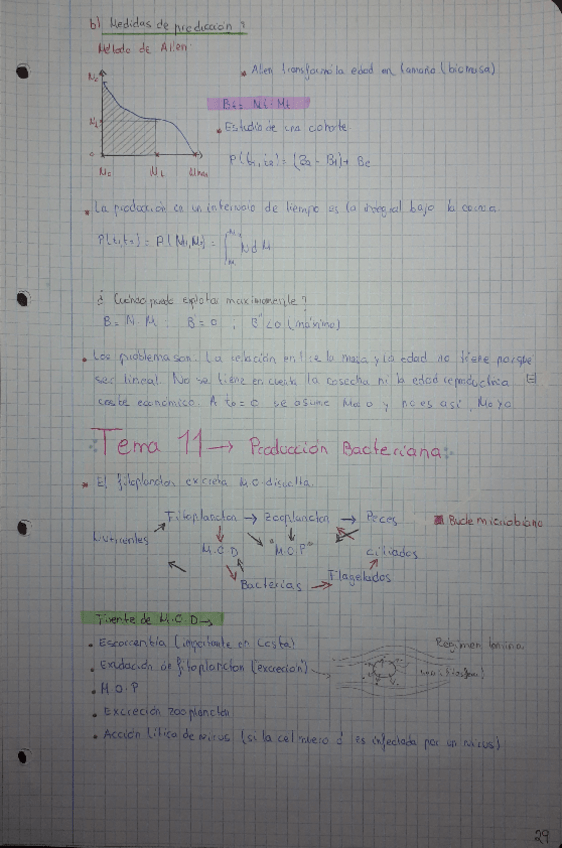 b) Medidas de producción:
Método de Allen
• Allen transforma la edad en tamaño (biomasa)
Bt = Nt · Mt
• Estudio de una cohorte
N₀
Nt
0
M₀ Mt
• La producción en un intervalo de tiempo es la integral bajo la curva
P(t₁,t₂) = P(M₁,M₂) = ∫ N dM
¿ Cuando puedo explotar maximamente?
B = N·M ; B' = 0 ; B'' < 0 (máximo)
• Los problemas son: La relación entre la masa y la edad no tiene porque
ser lineal. No se tiene en cuenta la cosecha ni la edad reproductiva. El
coste económico. A t₀ = 0 se asume M₀ = 0 y no es así, M₀ > 0
Tema 11 → Producción Bacteriana:
• El fitoplancton excreta M.O disuelta
Fitoplancton → zooplancton → Peces
Bucle microbiano
Nutrientes
M.O.D "M.O.P" Ciliados
Bacterias → Flagelados
Fuente de M.O.D →
• Escorrentía (importante en costa)
Régimen
• Exudación de fitoplancton (excreción)
• M.O.P
• Excreción zooplancton
• Acción lítica de virus (si la cel muere ó es infectada por un virus)
29